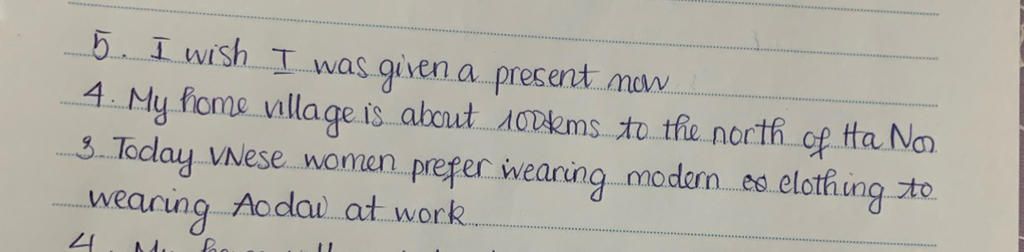 5. I wish I was given a present now
4. My home village is about 100kms to the north of Ha Noi
3. Today VNese women prefer wearing modern clothing to
wearing Aodai at work.
4. My home